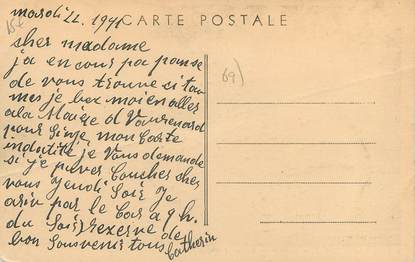 mardi 22. 1941
CARTE POSTALE
15€
69)
cher madame
ja en cour pa panse
de vous trouve si tau
mes je bex moien aller
a la Mairie d Vaurenard
pour Sinje, mon Carte
indatité, je vous demande
si je puver Coucher sher
vous Jeudi Soir Je
ariv par le Car a 9 h.
du Soir
de
bon Souvenir tous Catherin